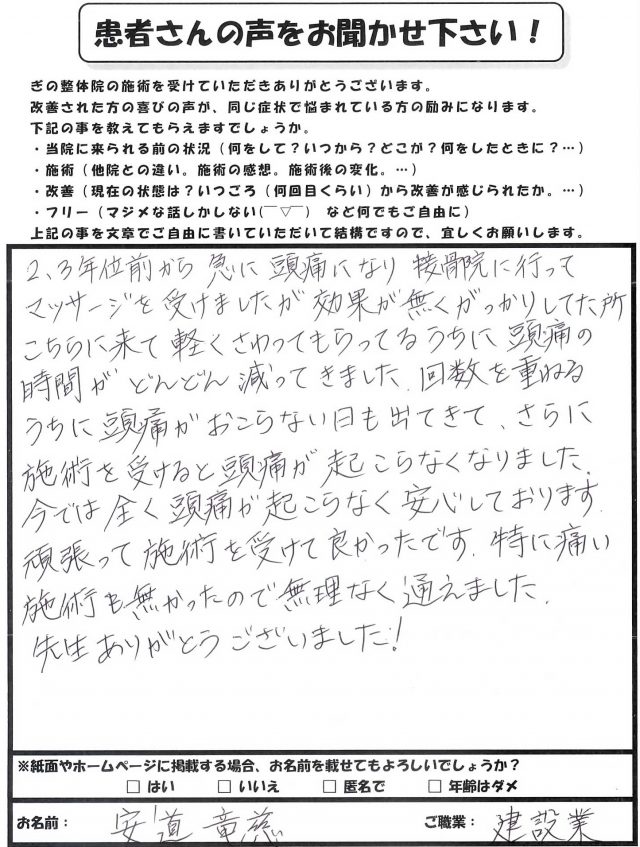 患者さんの声をお聞かせ下さい！
ぎの整体院の施術を受けていただきありがとうございます。
改善された方の喜びの声が、同じ症状で悩まれている方の励みになります。
下記の事を教えてもらえますでしょうか。
・当院に来られる前の状況（何をして？いつから？どこが？何をしたときに？…）
・施術（他院との違い。施術の感想。施術後の変化。…）
・改善（現在の状態は？いつごろ（何回目くらい）から改善が感じられたか。…）
・フリー（マジメな話しかしない(￣▽￣)　など何でもご自由に）
上記の事を文章でご自由に書いていただいて結構ですので、宜しくお願いします。
2、3年位前から 急に 頭痛になり 接骨院に行って
マッサージを 受けましたが 効果が 無くがっかりしてた所
こちらに来て 軽くさわってもらってるうちに 頭痛の
時間が どんどん 減ってきました。回数を重ねる
うちに 頭痛が おこらない日も出てきて、さらに
施術を受けると頭痛が 起こらなくなりました。
今では 全く 頭痛が 起こらなく 安心しております。
頑張って 施術を受けて 良かったです。特に痛い
施術も無かったので無理なく 通えました。
先生ありがとうございました!
※紙面やホームページに掲載する場合、お名前を載せてもよろしいでしょうか？
□ はい　□ いいえ　□ 匿名で　□ 年齢はダメ
お名前： 安道 竜慈　ご職業： 建設業